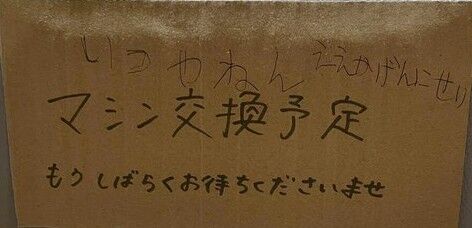 いつやねん ええかげんにせい
マシン交換予定
もうしばらくお待ちくださいませ